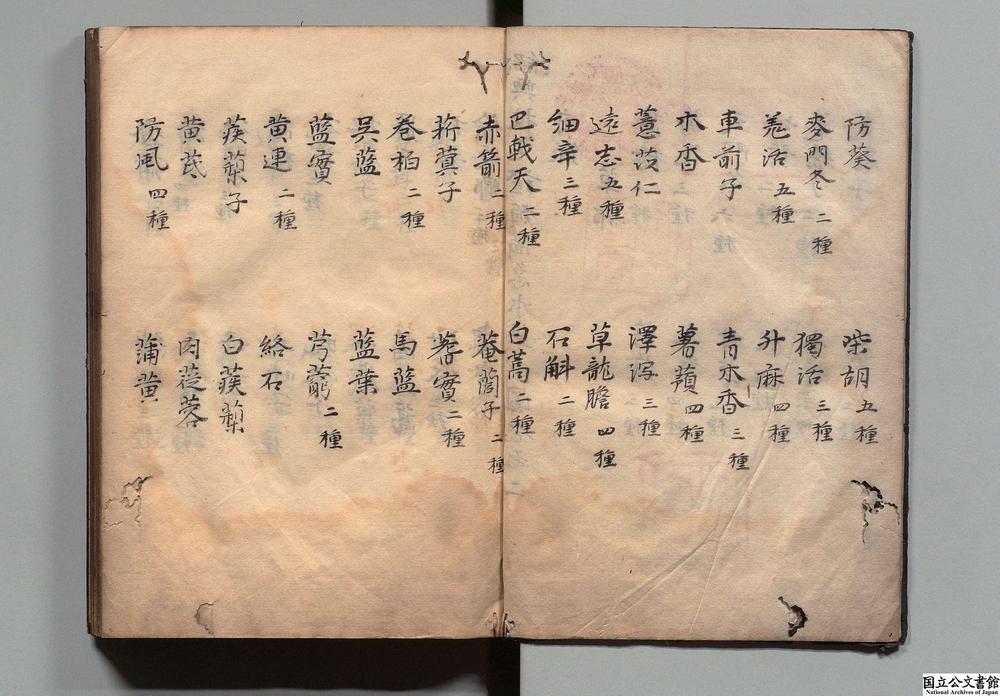 防葵 柴胡五種
麥門冬二種 獨活三種
羗活五種 升麻四種
車前子 青木香三種
木香 薯蕷四種
薏苡仁 澤瀉三種
遠志五種 草龍膽四種
細辛三種 石斛二種
巴戟天二種 白蒿二種
赤箭二種 菴䕡子二種
菥蓂子 蓍實二種
卷柏二種 馬藍
吳藍 藍葉
藍實 芎藭二種
黄連二種 絡石
蒺蔾子 白蒺蔾
黄芪 肉蓯蓉
防風四種 蒲黄
国立公文書館
National Archives of Japan